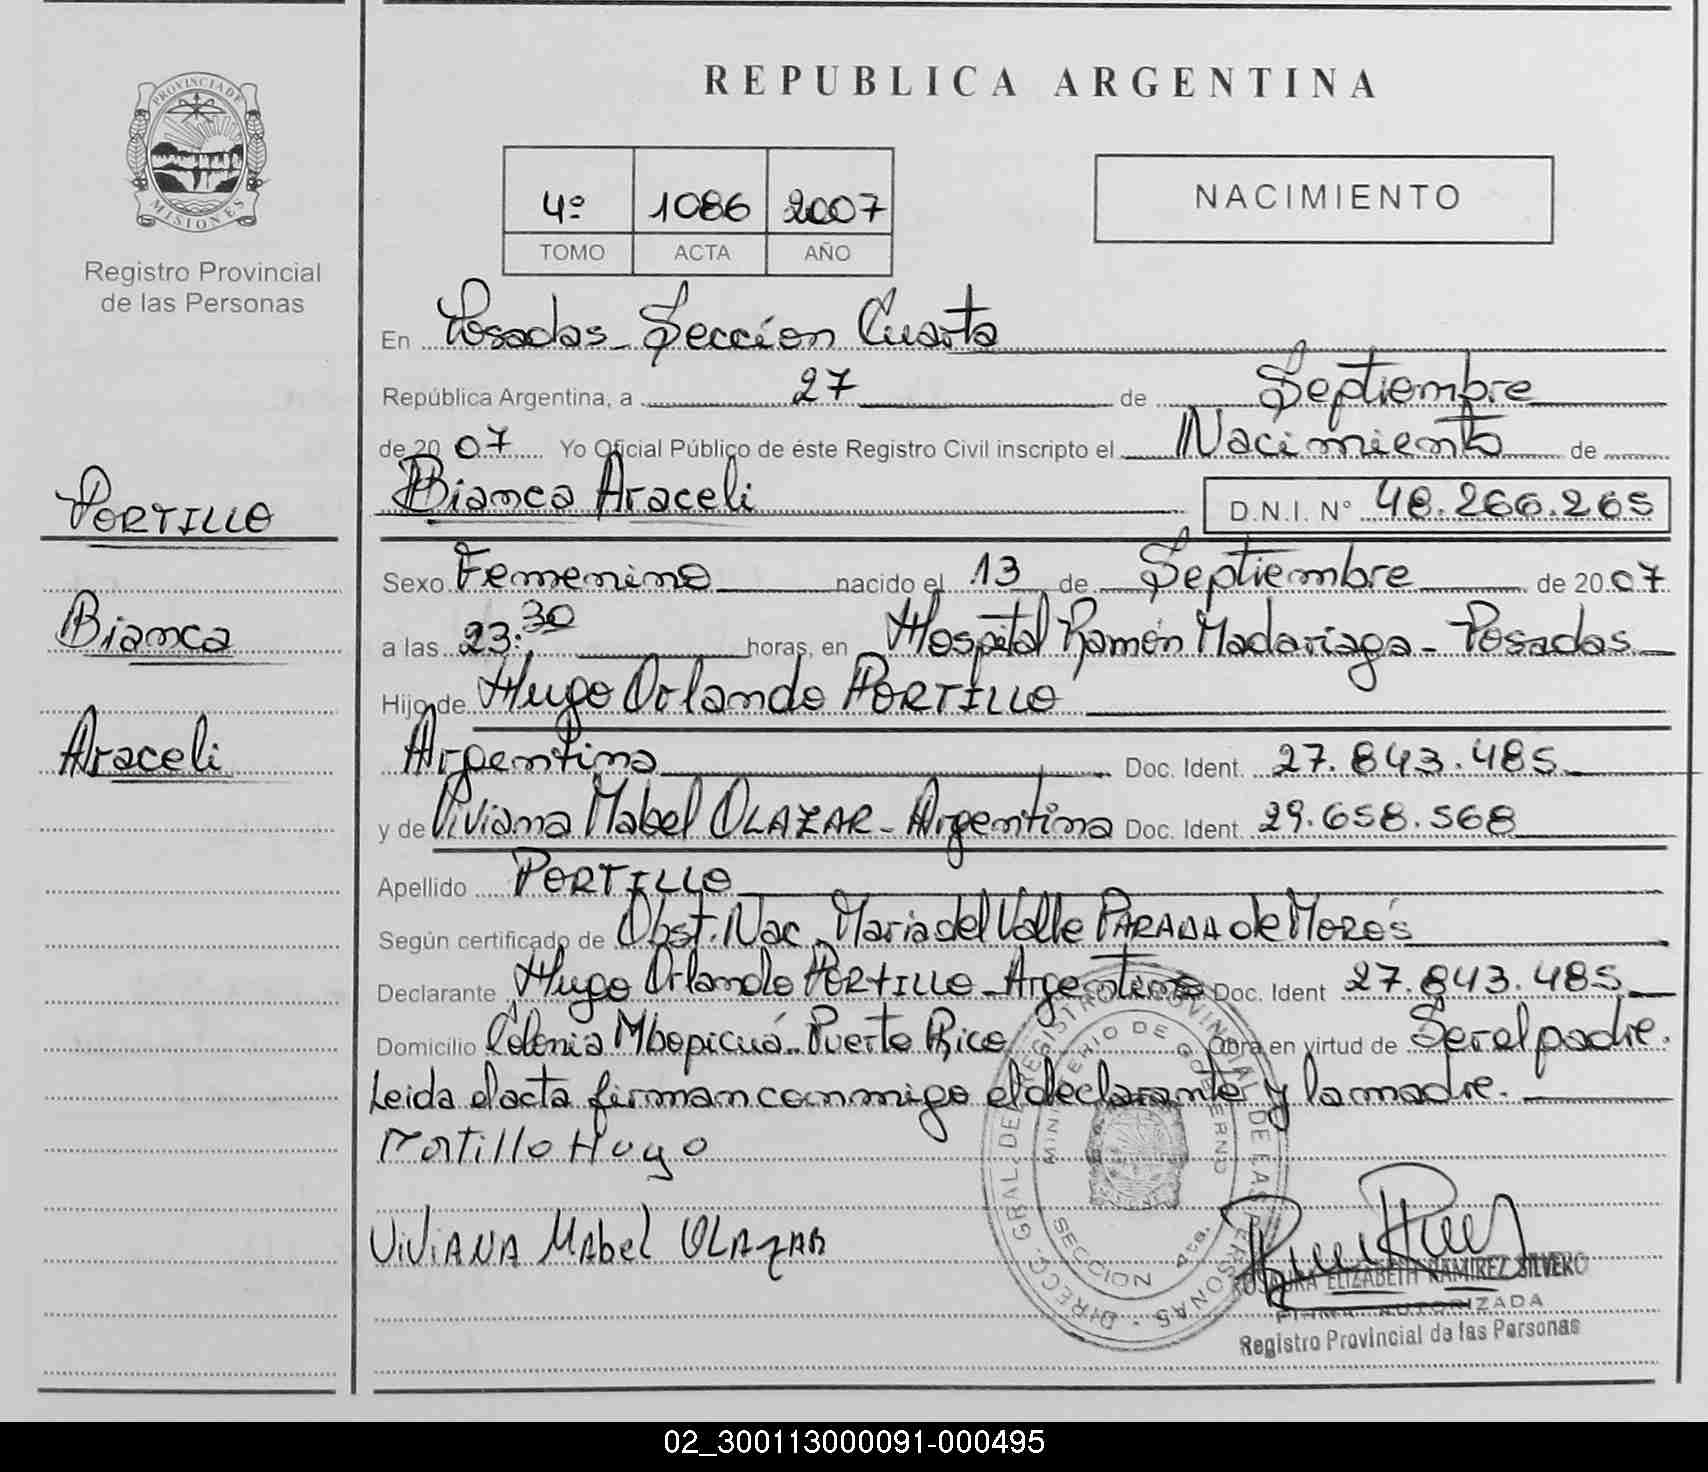 REPUBLICA ARGENTINA
PROVINCIA DE
MISIONES
Registro Provincial
de las Personas
4º 1086 2007
TOMO ACTA AÑO
NACIMIENTO
En Posadas - Sección Cuarta
República Argentina, a 27 de Septiembre
de 2007 Yo Oficial Público de éste Registro Civil inscripto el Nacimiento de
Bianca Araceli D.N.I. Nº 48.266.265
PORTILLO
Sexo Femenino nacido el 13 de Septiembre de 2007
Bianca
a las 23:30 horas, en Hospital Ramón Madariaga - Posadas
Hijo de Hugo Orlando PORTILLO
Araceli
Argentino Doc. Ident. 27.843.485
y de Viviana Mabel OLAZAR - Argentina Doc. Ident. 29.658.568
Apellido PORTILLO
Según certificado de Obst. Nac. Maria del Valle PARADA de Morés
Declarante Hugo Orlando PORTILLO - Argentino Doc. Ident 27.843.485
Domicilio Colonia Mbopicuá - Puerto Rico Obra en virtud de Ser el padre.
Leida el acta firman conmigo el declarante y la madre.
Portillo Hugo
ViViANA MAbel OLAZAR
DIRECC. GRAL. DE REGISTRO PROVINCIAL DE LAS PERSONAS
MINISTERIO DE GOBIERNO
SECCION 4ta.
ELIZABETH RAMIREZ SILVERO
FIRMA AUTORIZADA
Registro Provincial de las Personas
02_300113000091-000495